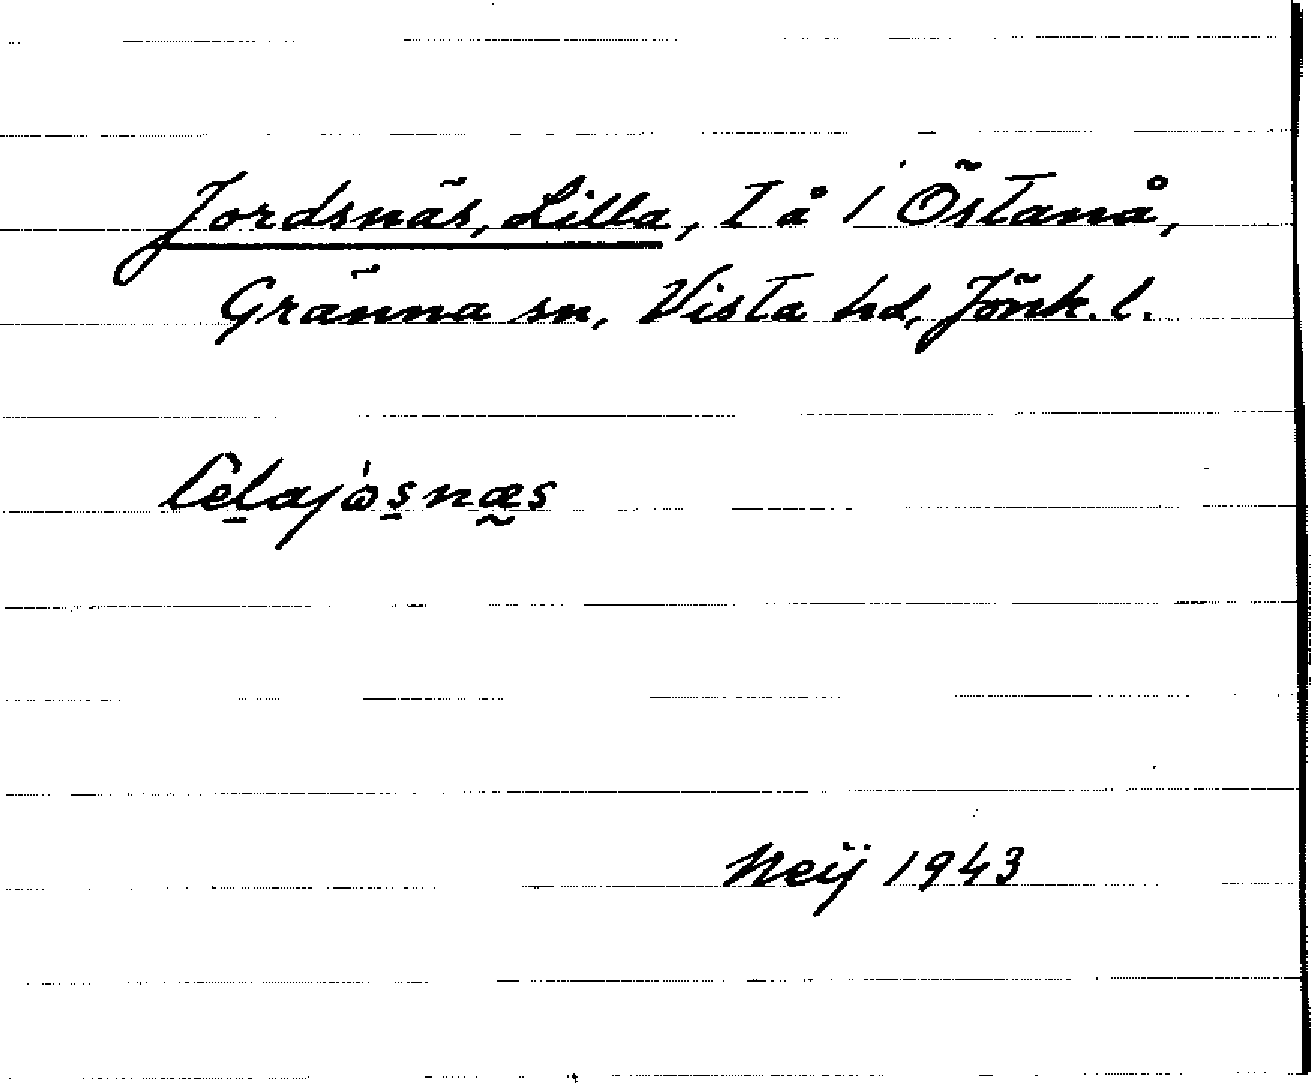 Jordsnäs, Lilla, I å i Östanå,
Gränna sn, Vista hd, Jönk. l.
lelajòsnæs
Neij 1943